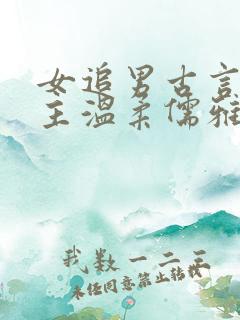 女追男古言
主温柔儒雅
我数一二三
未经同意禁止转载